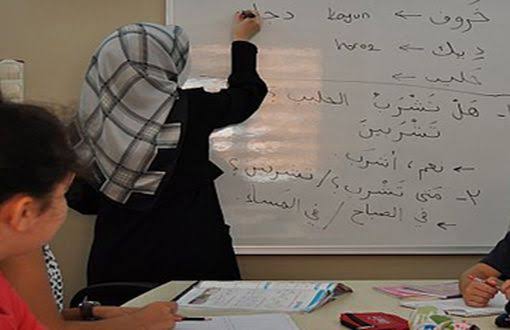 خَروف ← koyun دجا
دِيك ← horoz
حَليب ←
١- هَلْ تَشْرَبُ الحليب ؟
تَشْرَبِينَ
← نعم، أشرب.
٢- مَتَى تَشْرب ؟/ تشربين ؟
← في الصباح / في المَساء.